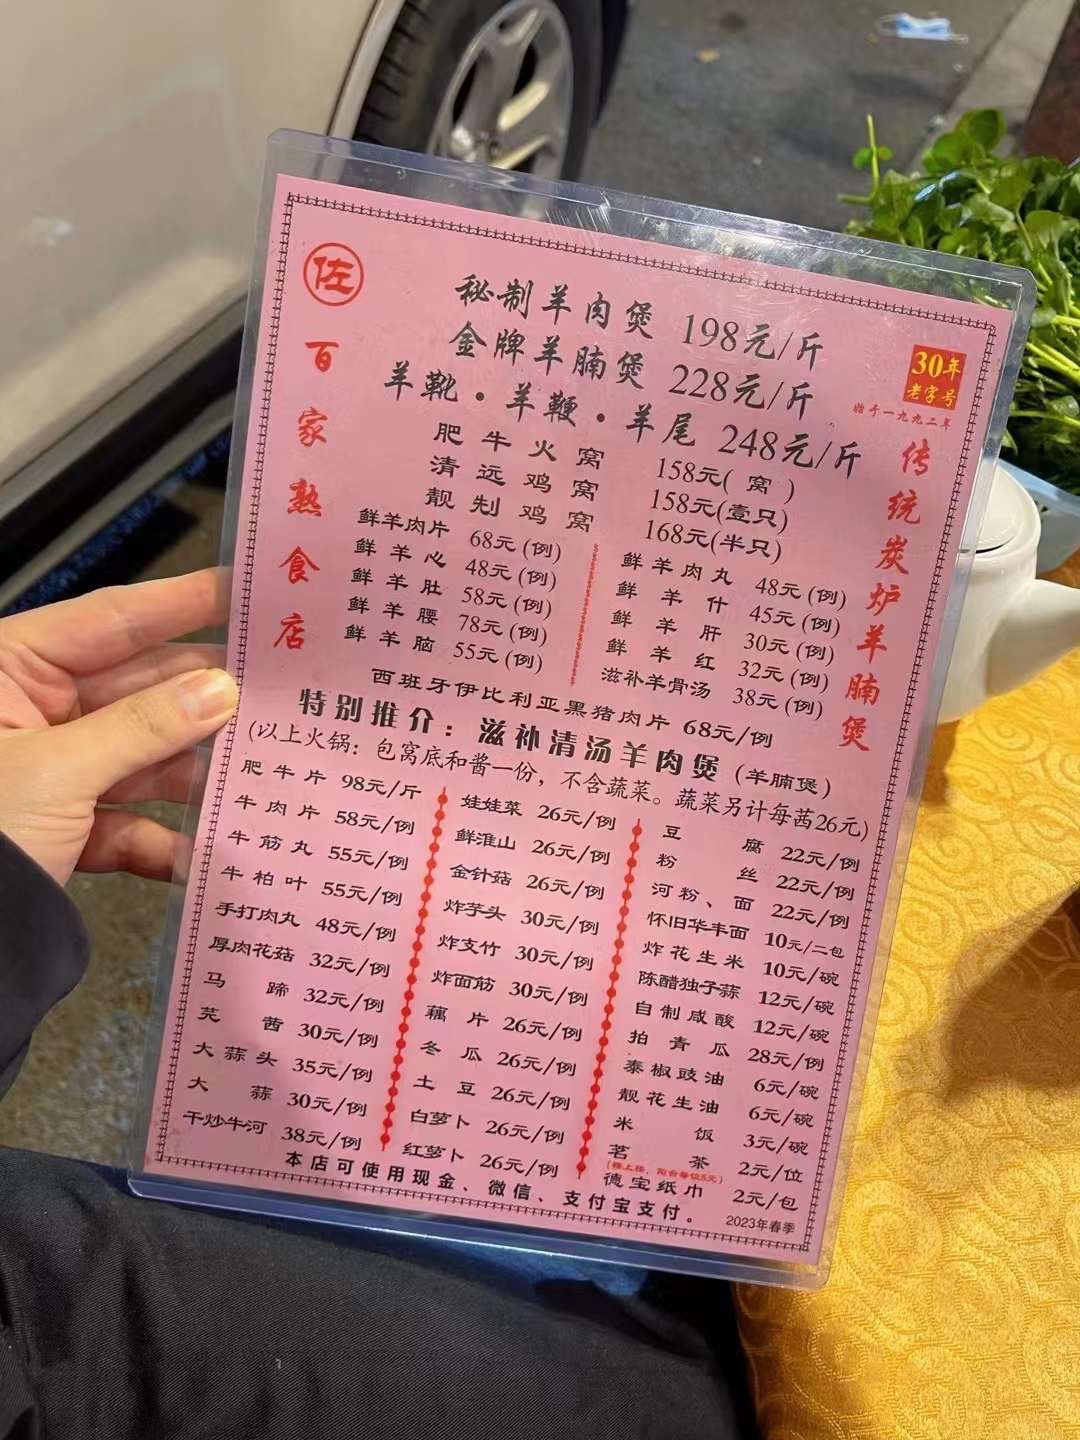 佐
百家熟食店
30年
老字号
始于一九九二年
传统炭炉羊腩煲
秘制羊肉煲 198元/斤
金牌羊腩煲 228元/斤
羊靴·羊鞭·羊尾 248元/斤
肥牛火窝 158元(窝)
清远鸡窝 158元(壹只)
靓制鸡窝 168元(半只)
鲜羊肉片 68元(例)
鲜羊心 48元(例)
鲜羊肚 58元(例)
鲜羊腰 78元(例)
鲜羊脑 55元(例)
鲜羊肉丸 48元(例)
鲜羊什 45元(例)
鲜羊肝 30元(例)
鲜羊红 32元(例)
滋补羊骨汤 38元(例)
西班牙伊比利亚黑猪肉片 68元/例
特别推介：滋补清汤羊肉煲（羊腩煲）
(以上火锅：包窝底和酱一份，不含蔬菜。蔬菜另计每茜26元)
肥牛片 98元/斤
牛肉片 58元/例
牛筋丸 55元/例
牛柏叶 55元/例
手打肉丸 48元/例
厚肉花菇 32元/例
马蹄 32元/例
芫茜 30元/例
大蒜头 35元/例
大蒜 30元/例
干炒牛河 38元/例
娃娃菜 26元/例
鲜淮山 26元/例
金针菇 26元/例
炸芋头 30元/例
炸支竹 30元/例
炸面筋 30元/例
藕片 26元/例
冬瓜 26元/例
土豆 26元/例
白萝卜 26元/例
红萝卜 26元/例
豆腐 22元/例
粉丝 22元/例
河粉、面 22元/例
怀旧华丰面 10元/二包
炸花生米 10元/碗
陈醋独子蒜 12元/碗
自制咸酸 12元/碗
拍青瓜 28元/例
泰椒豉油 6元/碗
靓花生油 6元/碗
米饭 3元/碗
茗茶 2元/位
(楼上楼、阳台每位5元)
德宝纸巾 2元/包
本店可使用现金、微信、支付宝支付。
2023年春季